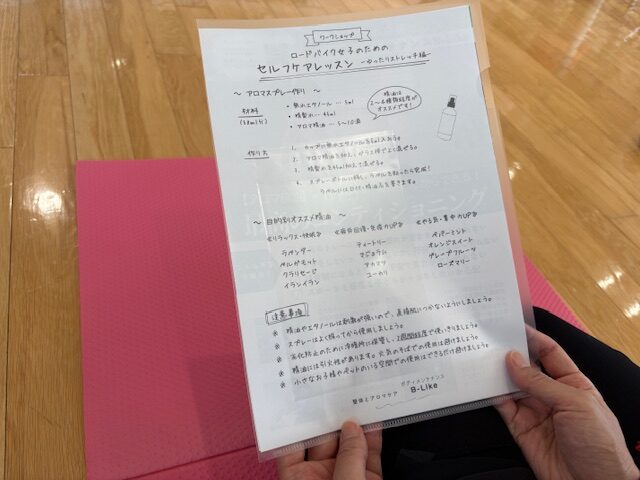 ワークショップ
ロードバイク女子のための
セルフケアレッスン -ゆったりストレッチ編-
〜 アロマスプレー作り 〜
材料
(50ml分)
・無水エタノール … 5ml
・精製水 … 45ml
・アロマ精油 … 5〜10滴
精油は
2〜4種類程度が
オススメです!
作り方
1. カップに無水エタノールを5ml入れる。
2. アロマ精油を加え、ガラス棒でよく混ぜる。
3. 精製水を45ml加えて混ぜる。
4. スプレーボトルに移し、ラベルを貼ったら完成!
ラベルには日付・精油名を書きます。
〜 目的別オススメ精油 〜
≪リラックス・快眠≫ ≪疲労回復・免疫力UP≫ ≪やる気・集中力UP≫
ラベンダー ティートリー ペパーミント
ベルガモット マジョラム オレンジスイート
クラリセージ アカマツ グレープフルーツ
イランイラン ユーカリ ローズマリー
注意事項
※ 精油やエタノールは刺激が強いので、直接肌につかないようにしましょう。
※ スプレーはよく振ってから使用しましょう。
※ 劣化防止のために冷暗所に保管し、2週間程度で使いきりましょう。
※ 精油には引火性があります。火気のそばでの使用は避けましょう。
※ 小さなお子様やペットのいる空間での使用はできるだけ避けましょう。
整体とアロマケア ボディメンテナンス
B-Like